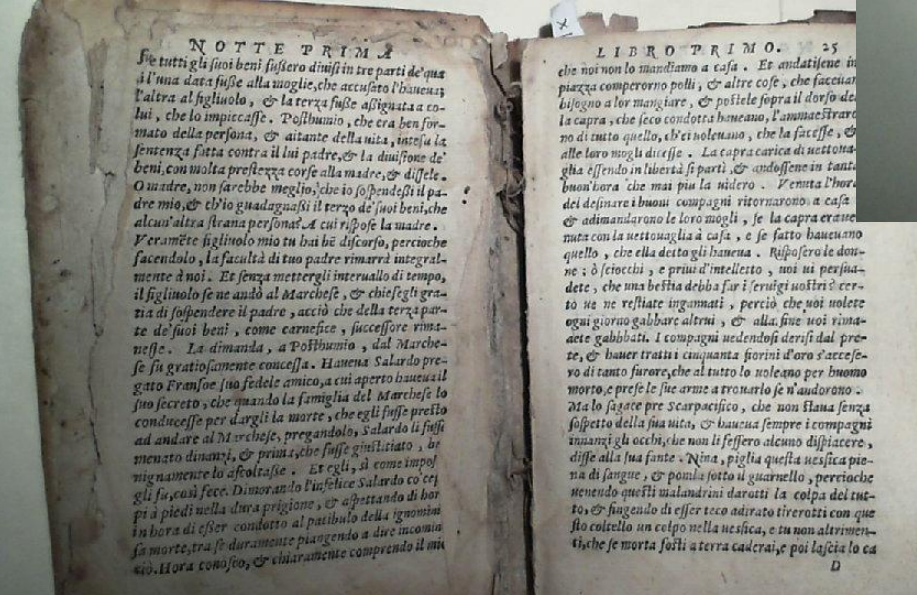 NOTTE PRIMA
che tutti gli suoi beni fussero diuisi in tre parti de'qua
i l'una data fusse alla moglie, che accusato l'haueua;
l'altra al figliuolo, & la terza fusse assignata a co-
lui, che lo impiccasse. Posthumio, che era ben for-
mato della persona, & aitante della uita, intesa la
sentenza fatta contra il lui padre, & la diuisione de'
beni, con molta prestezza corse alla madre, & dissele.
O madre, non sarebbe meglio, che io sospendessi il pa-
dre mio, & ch'io guadagnassi il terzo de'suoi beni, che
alcun'altra strana persona? A cui rispose la madre.
Veramẽte figliuolo mio tu hai bẽ discorso, percioche
facendolo, la facultà di tuo padre rimarrà integral-
mente à noi. Et senza mettergli interuallo di tempo,
il figliuolo se ne andò al Marchese, & chiesegli gra-
tia di sospendere il padre, acciò che della terza par-
te de'suoi beni, come carnefice, successore rima-
nesse. La dimanda, a Posthumio, dal Marche-
se fu gratiosamente concessa. Haueua Salardo pre-
gato Fransoe suo fedele amico, a cui aperto haueua il
suo secreto, che quando la famiglia del Marchese lo
conducesse per dargli la morte, che egli fusse presto
ad andare al Marchese, pregandolo, Salardo li fusse
menato dinanzi, & prima, che fusse giustitiato, be
nignamente lo ascoltasse. Et egli, sì come impos
gli fu, così fece. Dimorando l'infelice Salardo co'cep
pi à piedi nella dura prigione, & aspettando di hor
in hora di esser condotto al patibulo della ignomini
sa morte, tra se duramente piangendo a dire incomin
ciò. Hora conosco, & chiaramente comprendo il mi
LIBRO PRIMO. 25
che noi non lo mandiamo a casa. Et andatisene in
piazza comperorno polli, & altre cose, che faceuan
bisogno a lor mangiare, & postele sopra il dorso del
la capra, che seco condotta haueano, l'ammaestraro
no di tutto quello, ch'ei uoleuano, che la facesse, &
alle loro mogli dicesse. La capra carica di uettoua-
glia essendo in libertà si partì, & andossene in tanta
buon'hora che mai piu la uidero. Venuta l'hora
del desinare i buoni compagni ritornarono a casa
& adimandarono le loro mogli, se la capra era ue
nuta con la uettouaglia à casa, e se fatto haueuano
quello, che ella detto gli haueua. Risposero le don-
ne; ò sciocchi, e priui d'intelletto, uoi ui persua-
dete, che una bestia debba far i seruigi uostri? cer-
to ue ne restiate ingannati, perciò che uoi uolete
ogni giorno gabbare altrui, & alla fine uoi rima-
nete gabbbati. I compagni uedendosi derisi dal pre-
te, & hauer tratti i cinquanta fiorini d'oro s'accese-
ro di tanto furore, che al tutto lo uoleano per huomo
morto, e prese le sue arme a trouarlo se n'andorono.
Ma lo sagace pre Scarpacifico, che non staua senza
sospetto della sua uita, & haueua sempre i compagni
innanzi gli occhi, che non li fessero alcuno dispiacere,
disse alla sua fante. Nina, piglia questa uessica pie-
na di sangue, & ponla sotto il guarnello, percioche
uenendo questi malandrini darotti la colpa del tut-
to, & fingendo di esser teco adirato tirerotti con que
sto coltello un colpo nella uessica, e tu non altrimen-
ti, che se morta fosti a terra caderai, e poi lascia lo ca
D